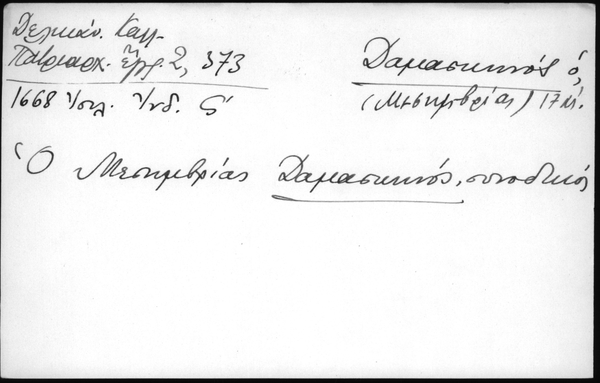 Δελικάν. Καλλ.
Πατριαρχ. ἔγγρ. 2, 373
1668 Ἰουλ. Ἰνδ. ς΄
Δαμασκηνός ὁ,
(Μεσημβρίας) 17 αἰ.
Ὁ Μεσημβρίας Δαμασκηνός, συνοδικός